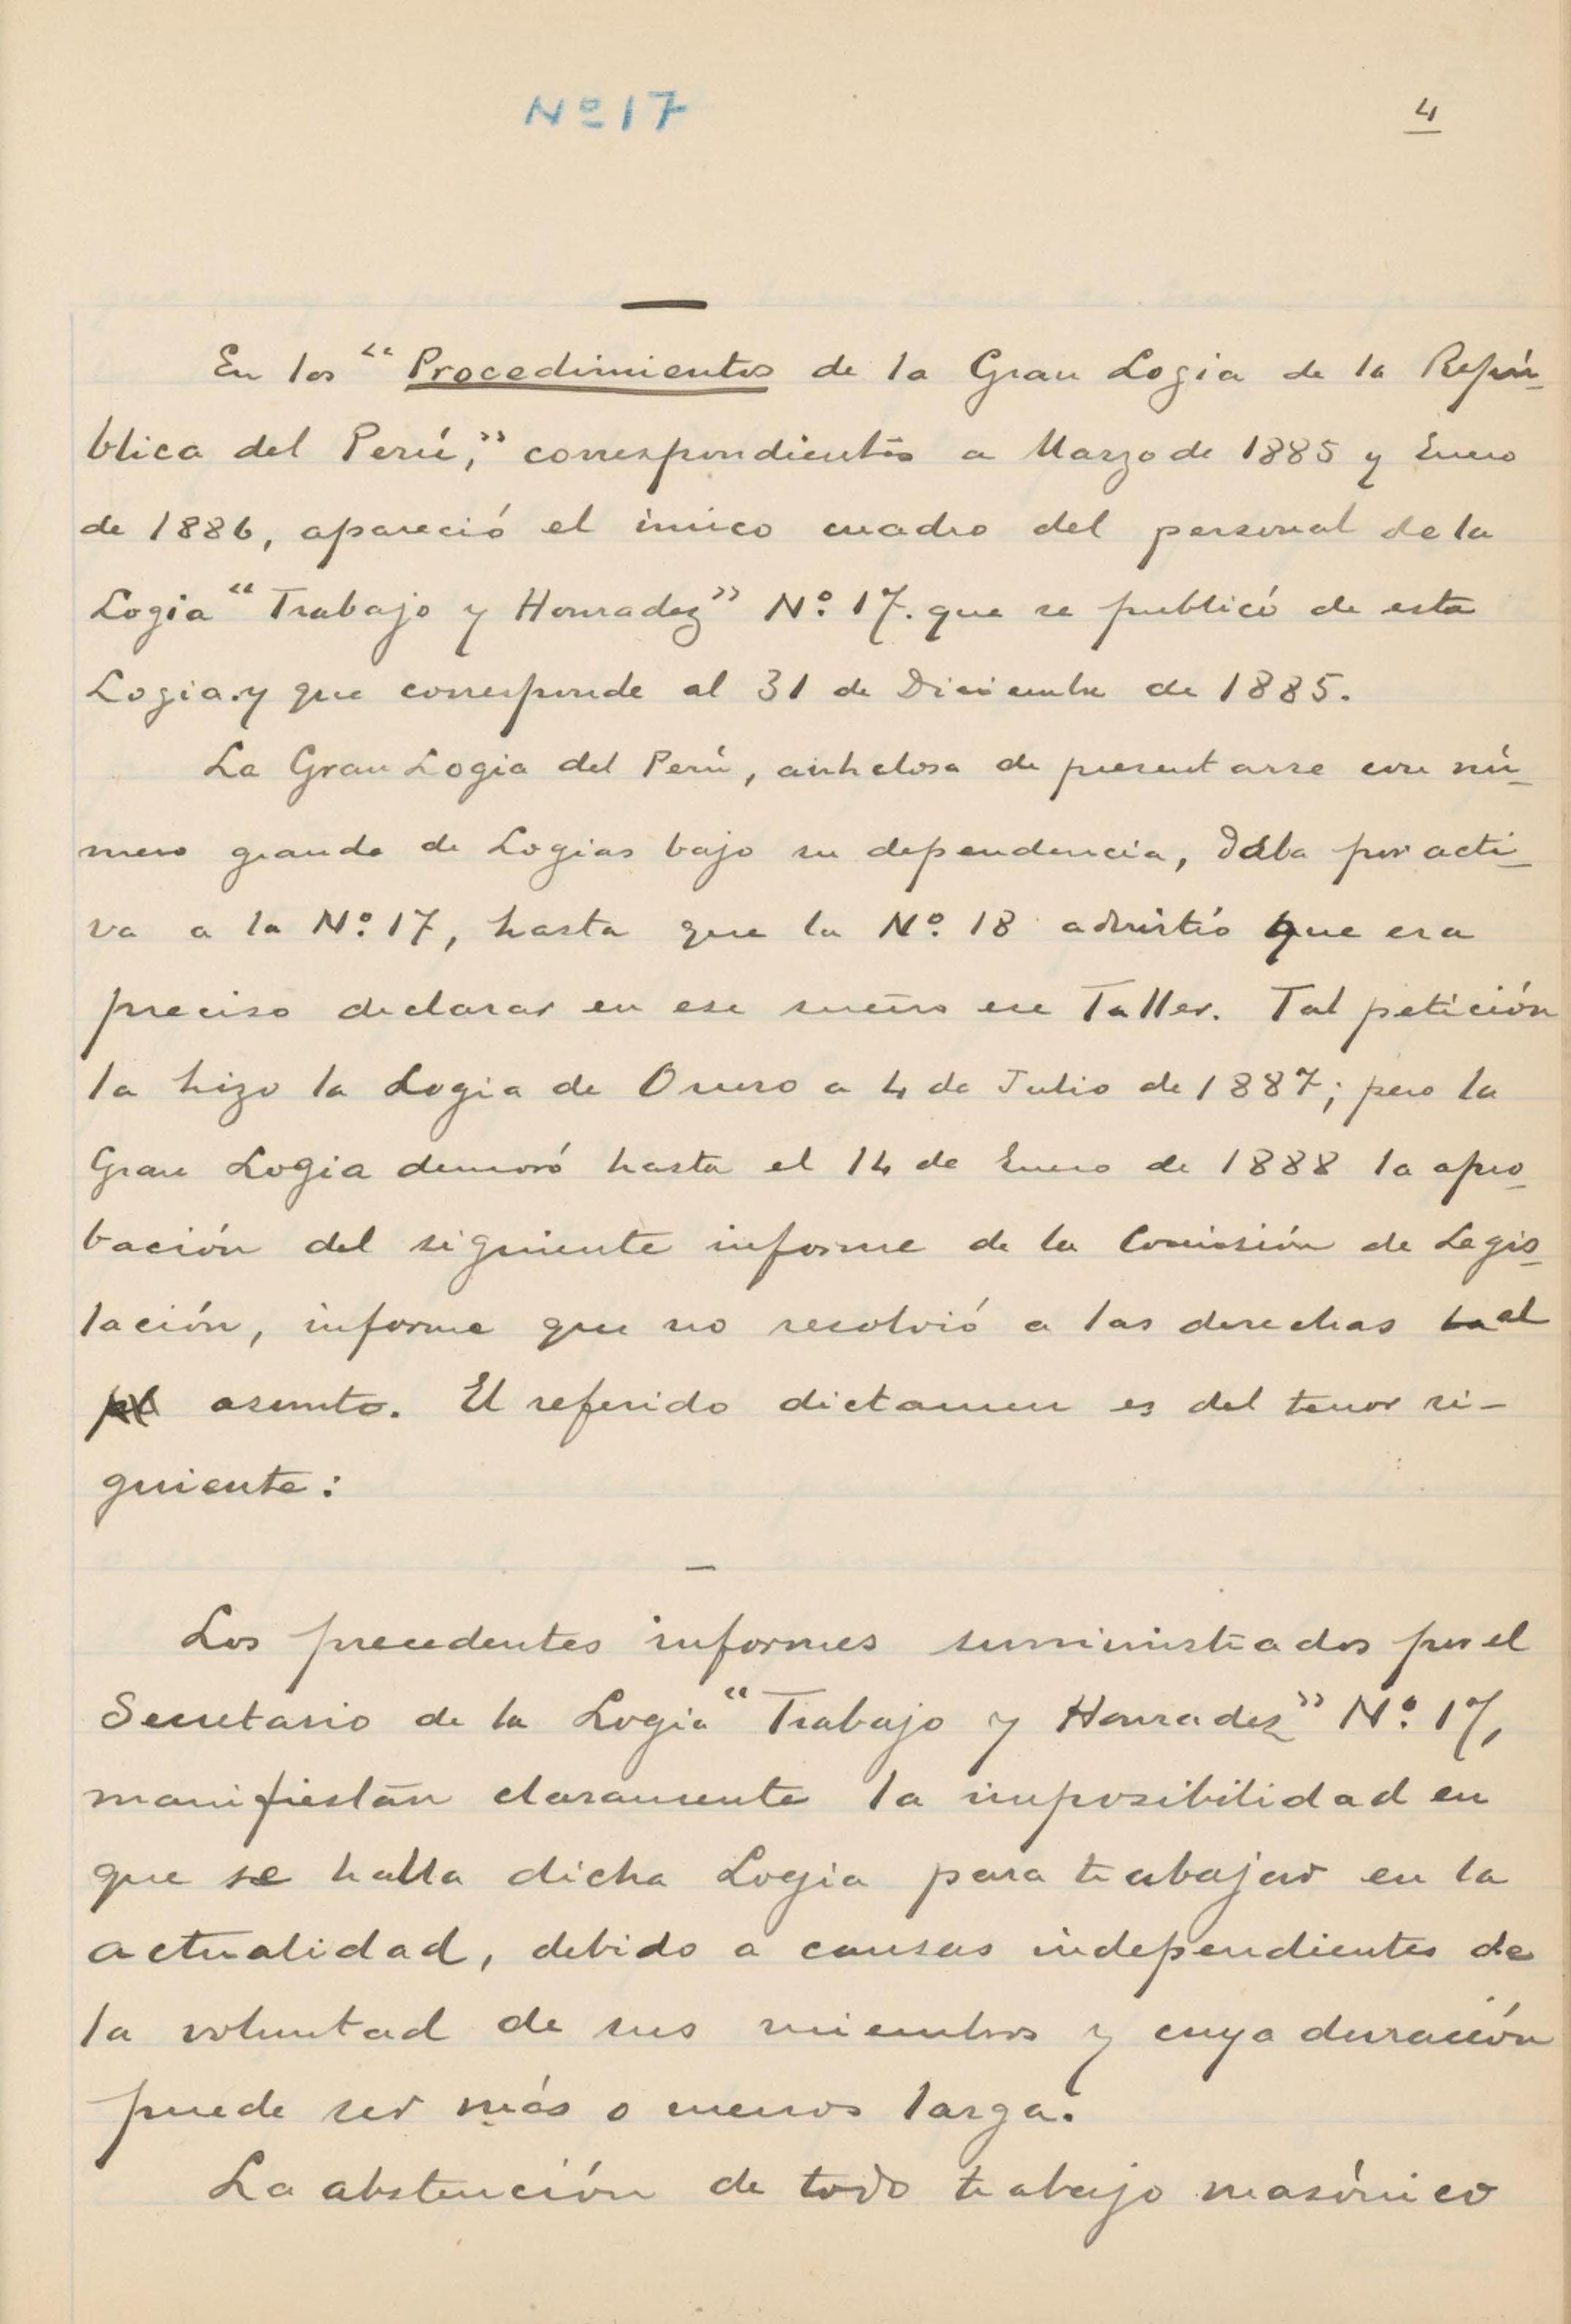 Nº 17
4
En los "Procedimientos de la Gran Logia de la Repú-
blica del Perú," correspondientes a Marzo de 1885 y Enero
de 1886, apareció el único cuadro del personal de la
Logia "Trabajo y Honradez" Nº 17. que se publicó de esta
Logia. y que corresponde al 31 de Diciembre de 1885.
La Gran Logia del Perú, anhelosa de presentarse con nú-
mero grande de Logias bajo su dependencia, daba por acti-
va a la Nº 17, hasta que la Nº 18 advirtió que era
preciso declarar en ese sueño ese Taller. Tal petición
la hizo la Logia de Oruro a 4 de Julio de 1887; pero la
Gran Logia demoró hasta el 14 de Enero de 1888 la apro-
bación del siguiente informe de la Comisión de Legis-
lación, informe que no resolvió a las derechas la el
asunto. El referido dictamen es del tenor si-
guiente:
Los precedentes informes suministrados por el
Secretario de la Logia "Trabajo y Honradez" Nº 17,
manifiestan claramente la imposibilidad en
que se halla dicha Logia para trabajar en la
actualidad, debido a causas independientes de
la voluntad de sus miembros y cuya duración
puede ser más o menos larga.
La abstención de todo trabajo masónico